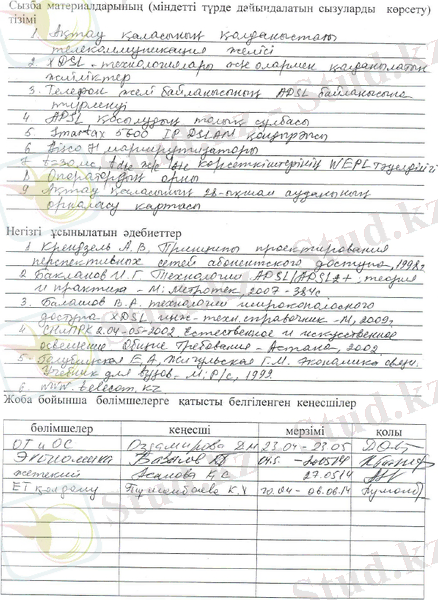 Сызба материалдарының (міндетті түрде дайындалатын сызуларды көрсету)
тізімі
1. Ақтау қаласының қолданыстағы
телекоммуникация желісі
2 xDSL - технологиялары қолданылатын
жиіліктер
3. Телефон желі байланысының ADSL байланысына
4 ADSL қосылудың толық сұлбасы
5 Smartax 5600 IP DSLAM қондырғысы
6 Cisco маршрутизаторы
7 көрсеткіштерінің WEPL тәуелділігі
8 Оператордың орны
9 Ақтау қаласының 28-ықшам ауданының
орналасу картасы
Негізгі ұсынылатын әдебиеттер
1 Крендзель А.В. Принципы проектирования
перспективных сетей абонентского доступа, 1998г
2 Бакланов И.Г. Технологии ADSL/ADSL2+, теория
и практика - М: Метротек, 2007 - 384с
3. Балашов В.А. технологии широкополосного
доступа xDSL. инж-техн. справочник - М, 2009г
4 СНиПРК 2.04-05-2002 Естественное и искусственное
освещение Общие требования - Астана, 2002
5 - Голубицкая Е.А, Жигульская Г.М. Экономика связи.
Учебник для вузов. - М: Р/с, 1999
6. www. telecom.kz
Жоба бойынша бөлімшелерге қатысты белгіленген кеңесшілер
бөлімшелер кеңесші мерзімі қолы
ОТ и ОС 23.04 - 23.05
Экономика
жетекші Асанова К.С 27.05.14
ЕТ қолдану 10.04 - 06.06.14
Stud.kz